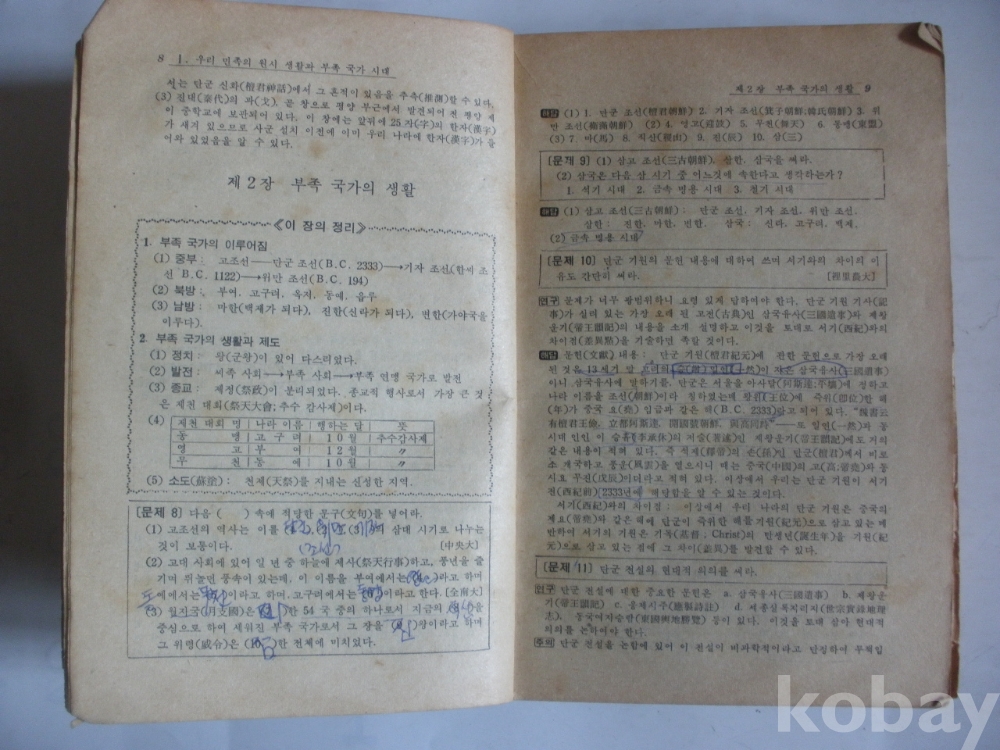 8 Ⅰ. 우리 민족의 원시 생활과 부족 국가 시대
서는 단군 신화(檀君神話)에서 그 흔적이 있음을 추측(推測)할 수 있다.
(3) 진대(秦代)의 과(戈), 곧 창으로 평양 부근에서 발견되어 전 평양
이 중학교에 보관되어 있다. 이 창에는 앞뒤에 25자(字)의 한자(漢字)
가 새겨 있으므로 사군 설치 이전에 이미 우리 나라에 한자(漢字)가 들
어와 있었음을 알 수 있다.
제 2 장 부족 국가의 생활
≪이 장의 정리≫
1. 부족 국가의 이루어짐
(1) 중부: 고조선──단군 조선(B.C. 2333)─→기자 조선(한씨 조
선 B.C. 1122)─→위만 조선(B.C. 194)
(2) 북방: 부여, 고구려, 옥저, 동예, 읍루
(3) 남방: 마한(백제가 되다), 진한(신라가 되다), 변한(가야국을
이루다).
2. 부족 국가의 생활과 제도
(1) 정치: 왕(군왕)이 있어 다스리었다.
(2) 발전: 씨족 사회─→부족 사회─→부족 연맹 국가로 발전
(3) 종교: 제정(祭政)이 분리되었다. 종교적 행사로서 가장 큰 것
은 제천 대회(祭天大會; 추수 감사제)이다.
(4) 제천 대회 명 나라 이름 행하는 달 뜻
동 맹 고 구 려 10 월 추수감사제
영 고 부 여 12 월 〃
무 천 동 예 10 월 〃
(5) 소도(蘇塗): 천제(天祭)를 지내는 신성한 지역.
[문제 8] 다음 ( ) 속에 적당한 문구(文句)를 넣어라.
(1) 고조선의 역사는 이를 단군, 위만, 기자의 삼대 시기로 나누는
것이 보통이다. (조선) [中央大]
(2) 고대 사회에 있어 일 년 중 하늘에 제사(祭天行事)하고, 풍년을 즐
기며 뛰놀던 풍속이 있는데, 이 이름을 부여에서는 라고 하며
예에서는 이라고 하며, 고구려에서는 이라고 한다. [全南大]
(3) 월지국(月支國)은 한 54 국 중의 하나로서 지금의 을
중심으로 하여 세워진 부족 국가로서 그 장을 왕이라고 하며
그 위명(威令)은 한 전체에 미치었다.
제 2 장 부족 국가의 생활 9
[해답] (1) 1. 단군 조선(檀君朝鮮) 2. 기자 조선(箕子朝鮮, 韓氏朝鮮) 3. 위
만 조선(衛滿朝鮮) (2) 4. 영고(迎鼓) 5. 무천(舞天) 6. 동맹(東盟)
7. 마(馬) 8. 직산(稷山) 9. 진(辰) 10. 삼(三)
[문제 9] (1) 삼고 조선(三古朝鮮), 삼한, 삼국을 써라.
(2) 삼국은 다음 삼 시기 중 어느것에 속한다고 생각하는가?
1. 석기 시대 2. 금속 병용 시대 3. 철기 시대
[해답] (1) 삼고 조선(三古朝鮮): 단군 조선, 기자 조선, 위만 조선,
삼한: 진한, 마한, 변한. 삼국: 신라, 고구려, 백제.
(2) 금속 병용 시대
[문제 10] 단군 기원의 문헌 내용에 대하여 쓰며 서기와의 차이의 이
유도 간단히 써라. [裡里農大]
[연구] 문제가 너무 광범위하니 요령 있게 답하여야 한다. 단군 기원 기사(記
事)가 실려 있는 가장 오래 된 고전(古典)인 삼국유사(三國遺事)와 제왕
운기(帝王韻記)의 내용을 소개 설명하고 이것을 토대로 서기(西紀)와의
차이점(差異點)을 기술하면 족할 것이다.
[해답] 문헌(文獻) 내용: 단군 기원(檀君紀元)에 관한 문헌으로 가장 오래
된 것은 13세기 말 고려의 然)이 지은 삼국유사(三國遺事)
이니 삼국유사에 말하기를, 단군은 서울을 아사달(阿斯達;平壤)에 정하고
나라 이름을 조선(朝鮮)이라 정하였는데 왕위(王位)에 즉위(卽位)한 해
(年)가 중국 요(堯) 임금과 같은 해(B.C. 2333)라고 되어 있다. "魏書云
有檀君王儉, 立都阿斯達, 開國號朝鮮, 與高同時"──또 일연(一然)과 동
시대 반인 이승휴(李承休)의 저술(著述)인 제왕운기(帝王韻記)에도 거의
같은 내용이 적혀 있다. 즉 석제(釋帝)의 손(孫)인 단군(檀君)에서 비로
소 개국하고 풍운(風雲)을 헐으시니 때는 중국(中國)의 고(高;帝堯)와 동
시요 무진(戊辰)이더라고 적혀 있다. 이상에서 우리는 단군 기원이 서기
전(西紀前) 2333년에 해당함을 알 수 있는 것이다.
서기(西紀)와의 차이점: 이상에서 우리 나라의 단군 기원은 중국의
제요(帝堯)와 같은 해에 단군이 즉위한 해를 기원(紀元)으로 삼고 있는 데
반하여 서기의 기원은 기독(基督; Christ)의 탄생년(誕生年)을 기원(紀
元)으로 삼고 있는 점에 그 차이(差異)를 발견할 수 있다.
[문제 11] 단군 전설의 현대적 위의를 써라.
[연구] 단군 전설에 대한 중요한 문헌은 a. 삼국유사(三國遺事) b. 제왕운
기(帝王韻記) c. 응제시주(應製詩註) d. 세종실록지리지(世宗實錄地理
志), 동국여지승람(東國輿地勝覽) 등이 있다. 이것을 토대 삼아 현대적
의의를 논하여야 한다.
[주의] 단군 전설을 논함에 있어 이 전설이 비과학적이라고 단정하여 무책임
kobay